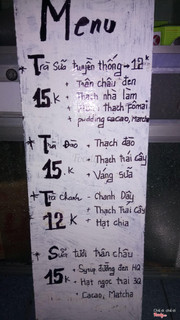 Menu
+ Trà Sữa truyền thống → 12k
15k
+ Trân châu đen
+ Thạch nhà làm
+ thạch fômai
+ pudding cacao, Matcha
+ Trà Đào
15k
+ Thạch đào
+ Thạch trái cây
+ Váng sữa
+ Trà Chanh
12k
- Chanh Dây
+ Thạch Trái Cây
+ Hạt chia
+ Sữa tươi trân châu
15k
- Syrup đường đen HQ
+ Hạt ngọc trai 3Q
- Cacao, Matcha